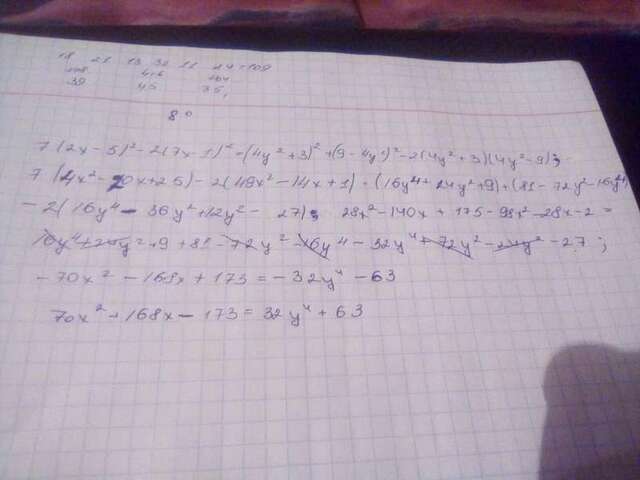 18 21 13 32 11 24 109
39 45 35,
80
7(2x-5)²-2(7x-1)²=(4y²+3)²+(9-4y²)²-2(4y²+3)(4y²-9);
7(4x²-20x+25)-2(49x²-14x+1)=(16y⁴+24y²+9)+(81-72y²-16y⁴)
-2(16y⁴-36y²+12y²-27); 28x²-140x+175-98x²-28x-2=
16y⁴+24y²+9+81-72y²-16y⁴-32y⁴+72y²-24y²-27;
-70x²-168x+173=-32y⁴-63
70x²+168x-173=32y⁴+63